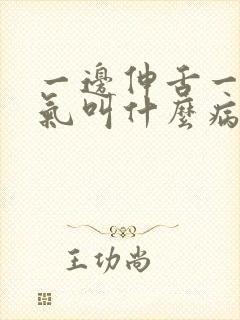 一邊伸舌一
氣叫什麼病
王功尚